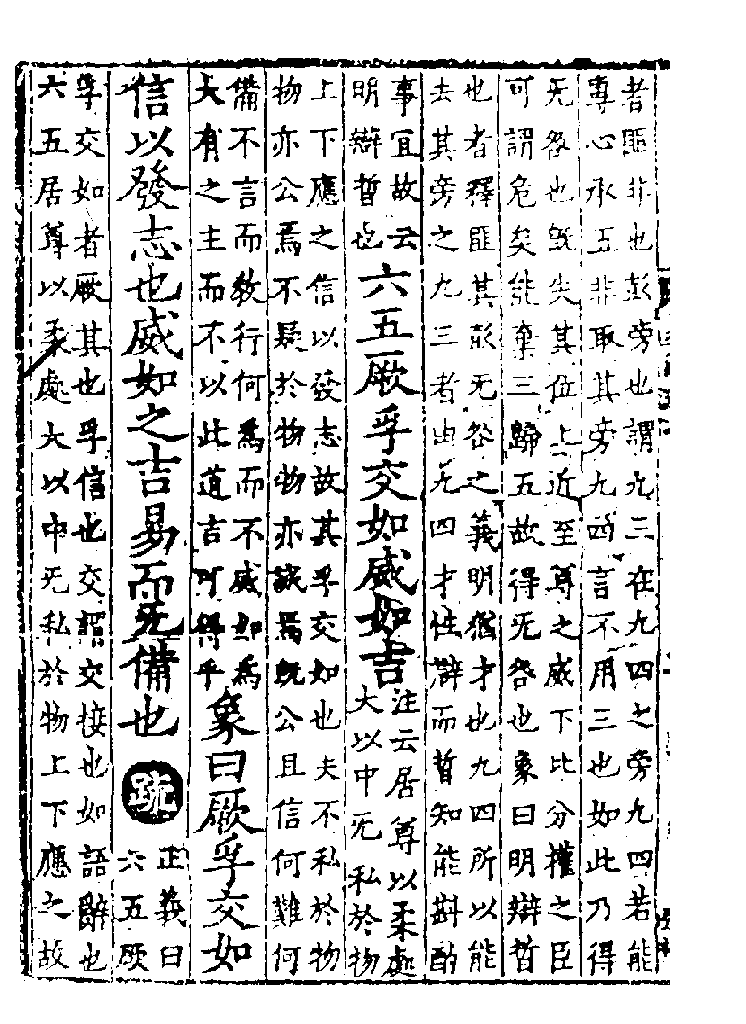 者匪非也彭旁也謂九三在九四之旁九四若能
專心承五非取其旁九四言不用三也如此乃得
无咎也旣失其位上近至尊之威下比分權之臣
可謂危矣能棄三歸五故得无咎也象曰明辯晢
也者釋匪其彭无咎之義明猶才也九四所以能
去其旁之九三者由九四才性辯而晢知能斟酌
事宜故云
明辯晢也
六五厥孚交如威如吉
注云居尊以柔處
大以中无私於物
上下應之信以發志故其孚交如也夫不私於物
物亦公焉不疑於物物亦誠焉旣公且信何難何
備不言而教行何爲而不威如爲
大有之主而不以此道吉可得乎
象曰厥孚交如
信以發志也威如之吉易而无備也
疏
正義曰
六五厥
孚交如者厥其也孚信也交謂交接也如語辭也
六五居尊以柔處大以中无私於物上下應之故